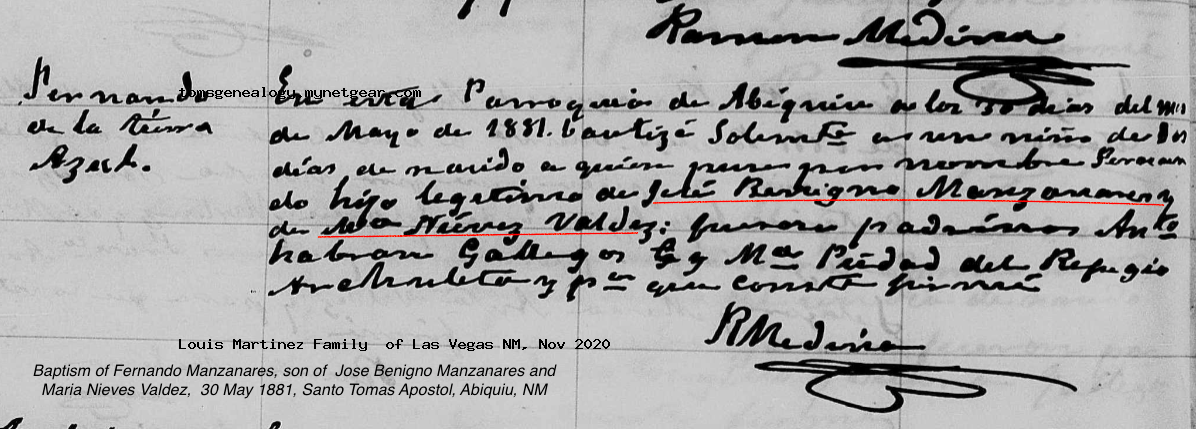 Ramon Medina
Fernando
de la tierra
Azul.
tomsgenealogy.mynetgear.com
En esta Parroquia de Abiquiu a los 30 dias del mes
de Mayo de 1881. bautizé Solemte a un niño de dos
días de nacido a quien puse por nombre Fernan
do hijo legitimo de José Benigno Manzanares y
de Ma Nievez Valdez: fueron padrinos Anto
Gallegos G y Ma Piedad del Refugio
Archuleta y pa que conste firmé
RMedina
Louis Martinez Family of Las Vegas NM, Nov 2020
Baptism of Fernando Manzanares, son of Jose Benigno Manzanares and
Maria Nieves Valdez, 30 May 1881, Santo Tomas Apostol, Abiquiu, NM